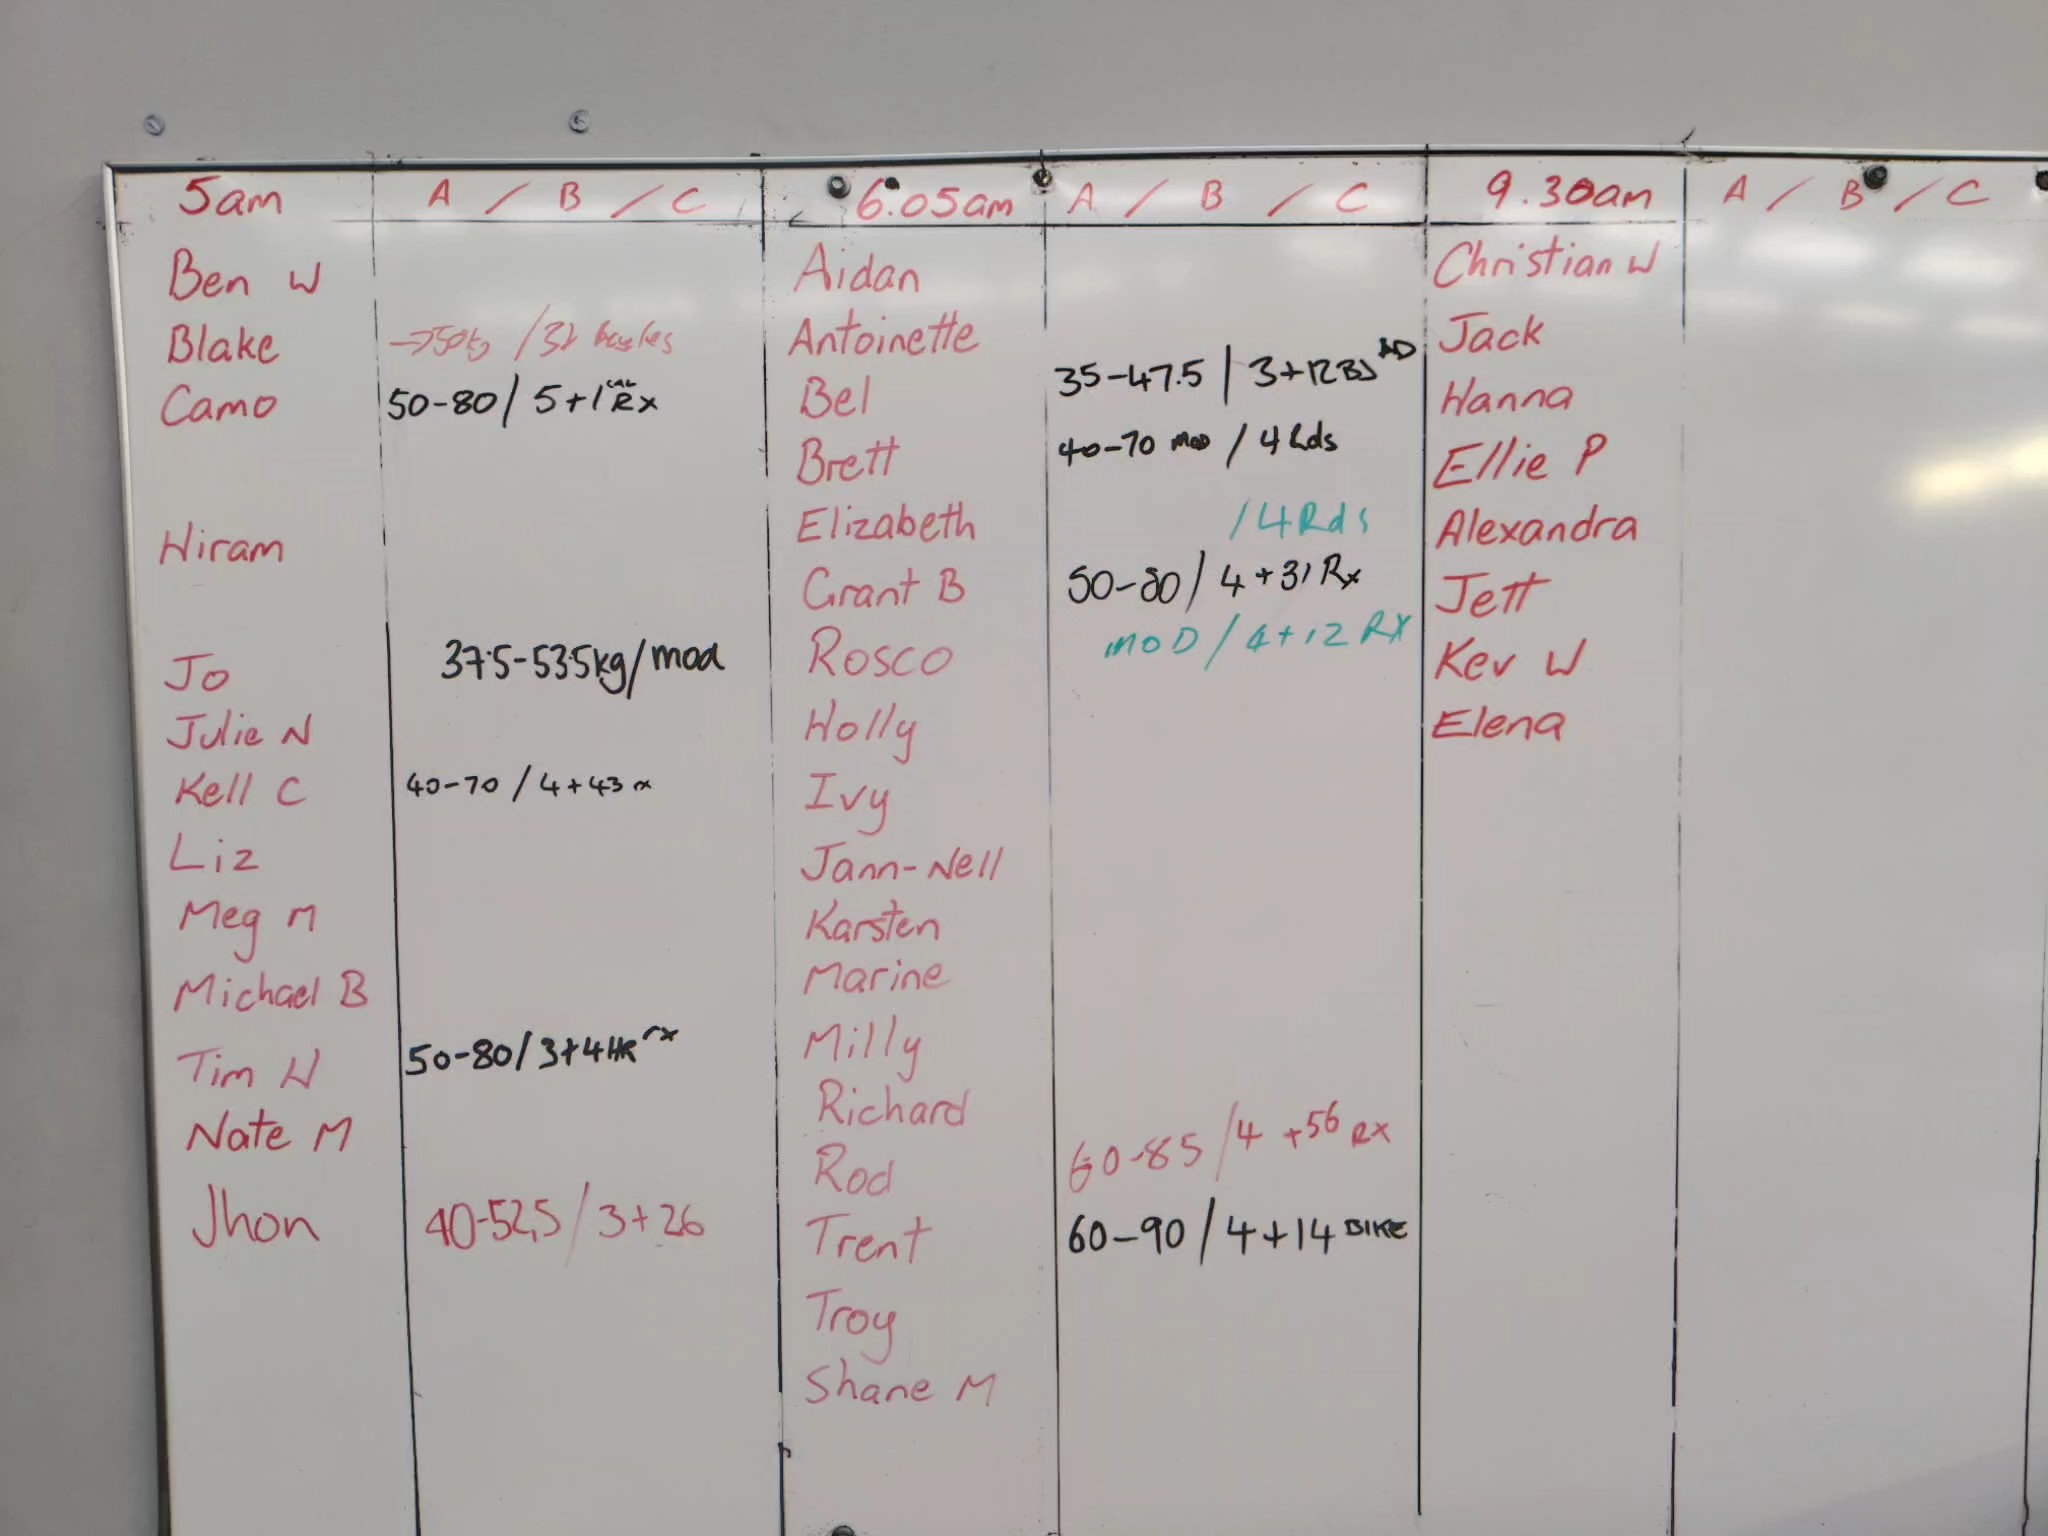 5am A / B / C 6.05am A / B / C 9.30am A / B / C
Ben W Aidan Christian W
Blake →50kg / 3 Antoinette Jack
Camo 50-80 / 5+1 CAL Rx Bel 35-47.5 / 3+12 BJ Hanna
Brett 40-70 MOD / 4 Rds Ellie P
Hiram Elizabeth / 4 Rds Alexandra
Grant B 50-80 / 4+31 Rx Jett
Jo 37.5-53.5kg / mod Rosco MOD / 4+12 RX Kev W
Julie N Holly Elena
Kell C 40-70 / 4+43 rx Ivy
Liz Jann-Nell
Meg M Karsten
Michael B Marine
Tim W 50-80 / 3+4 HR rx Milly
Nate M Richard
Rod 60-85 / 4 +56 RX
Jhon 40-52.5 / 3+26 Trent 60-90 / 4+14 BIKE
Troy
Shane M